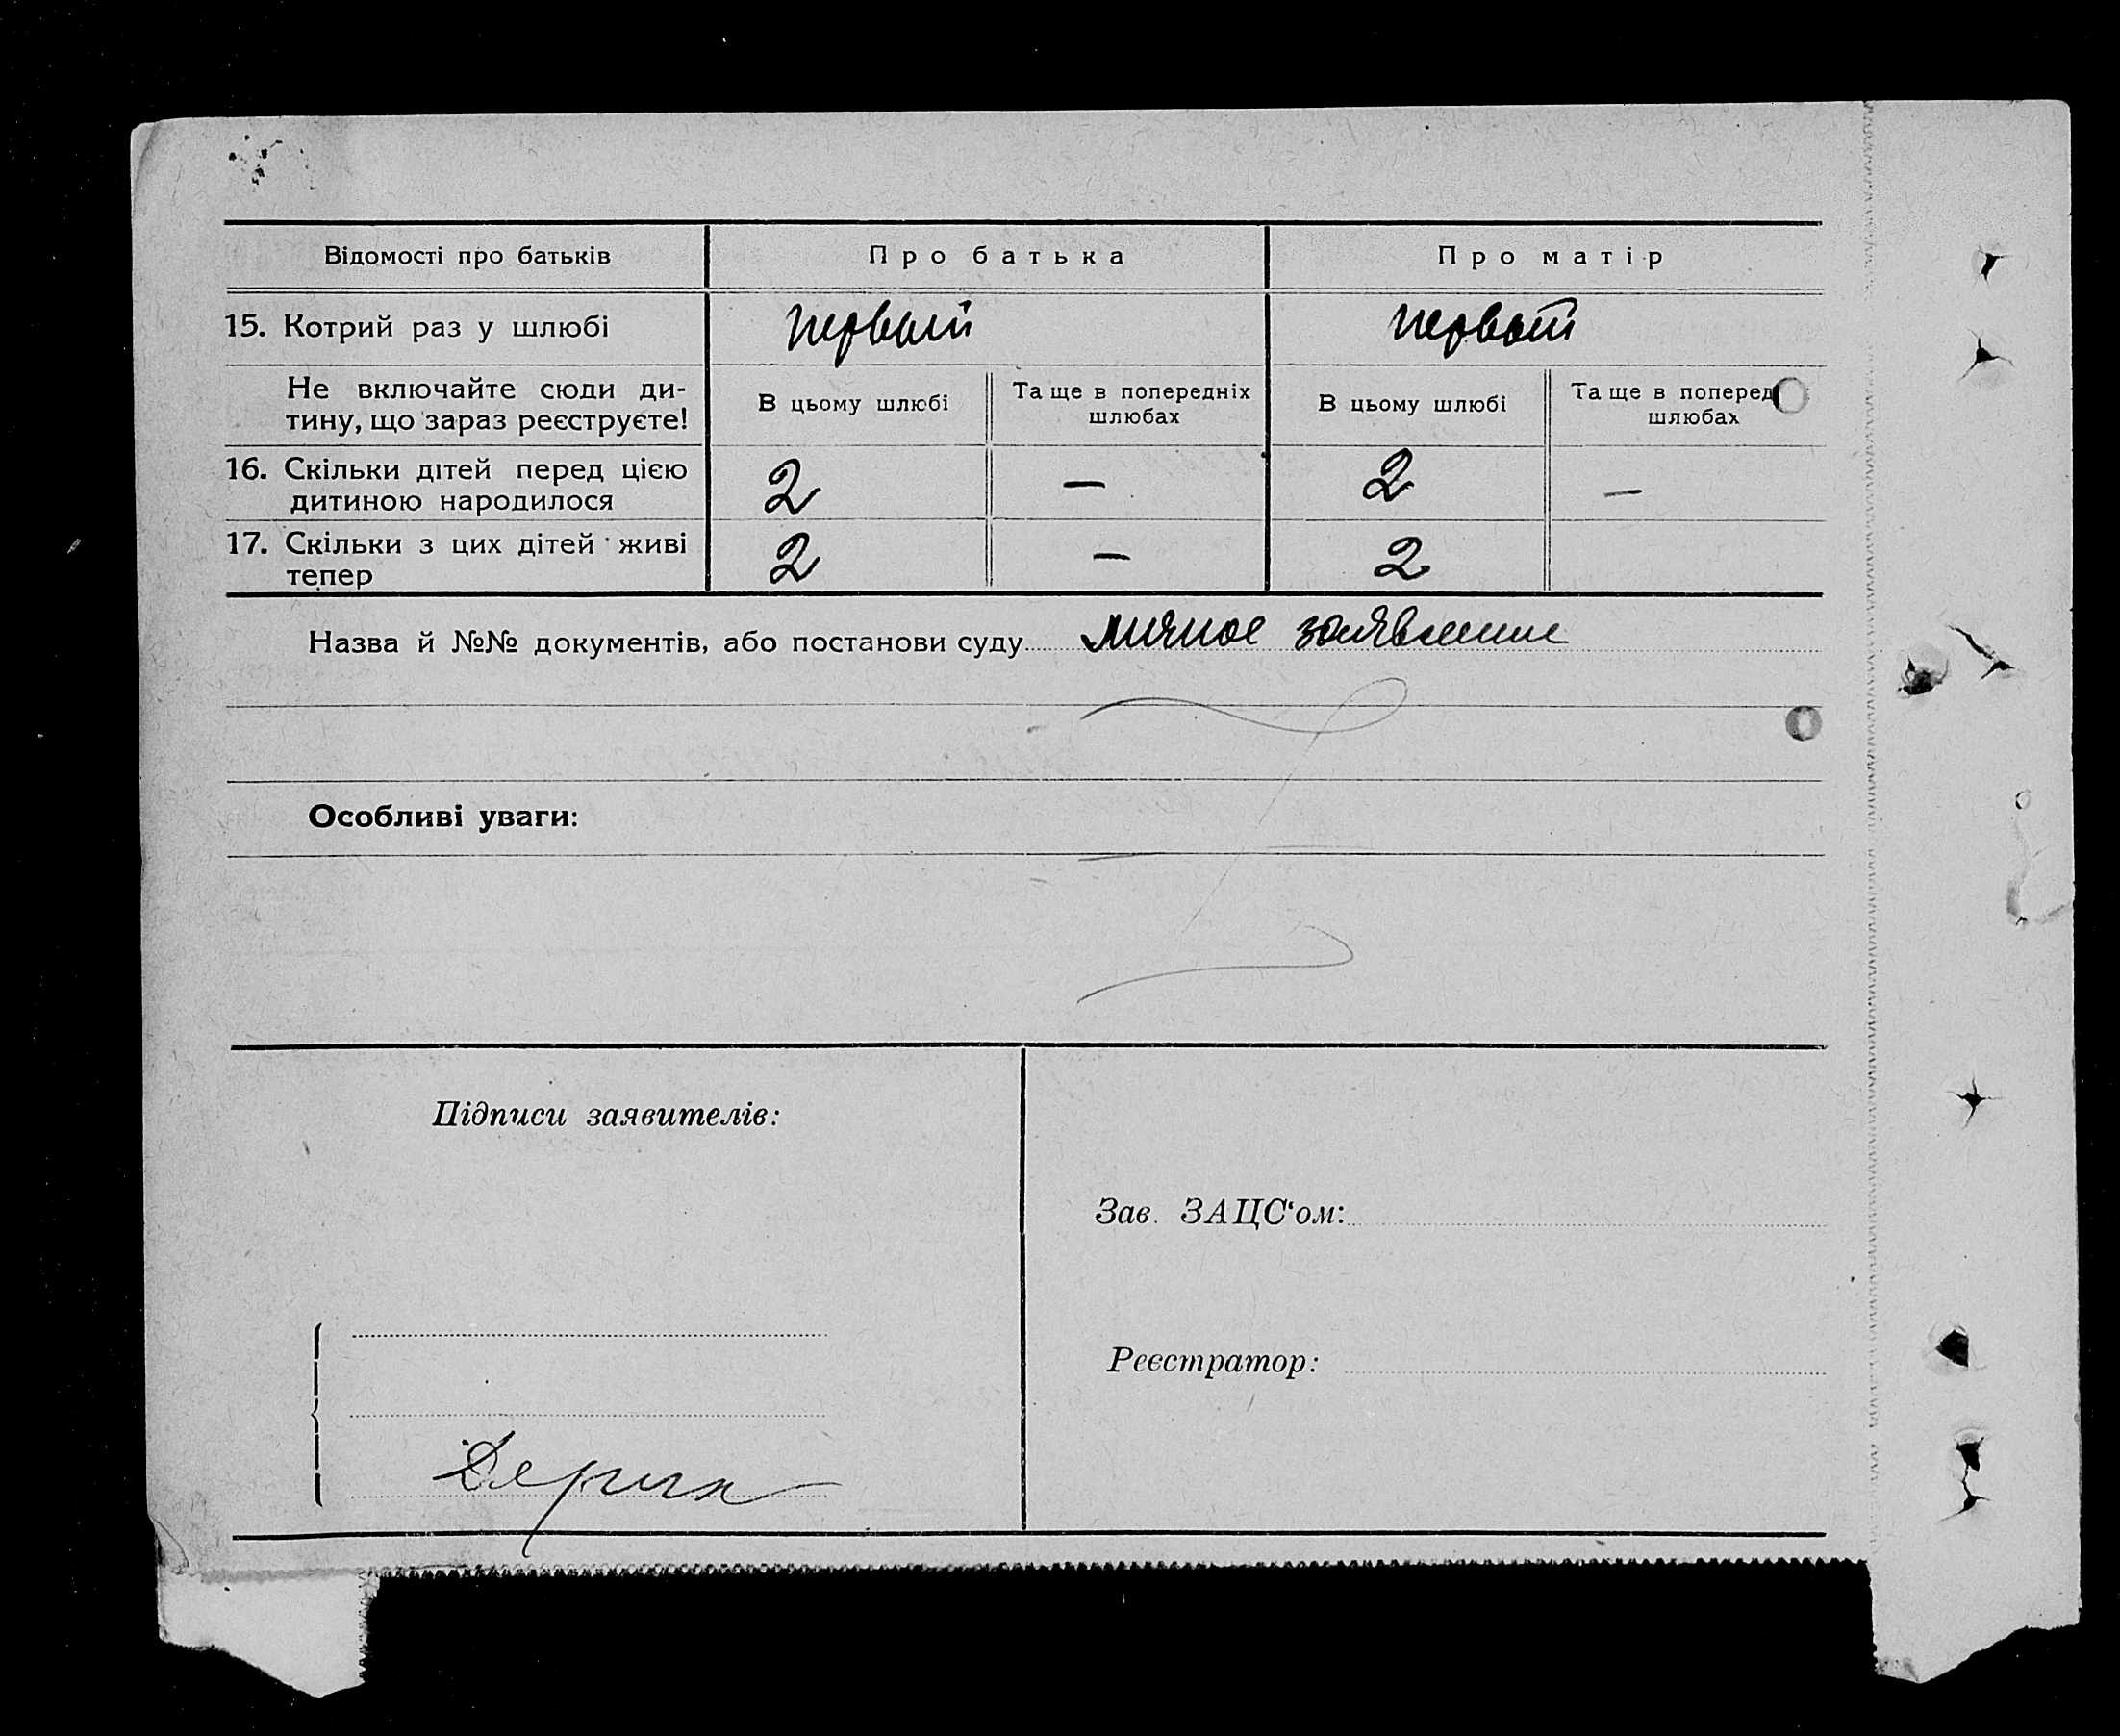 Відомості про батьків
Про батька
Про матір
15. Котрий раз у шлюбі
первый
первый
Не включайте сюди ди-
тину, що зараз реєструєте!
В цьому шлюбі
Та ще в попередніх
шлюбах
В цьому шлюбі
Та ще в поперед
шлюбах
16. Скільки дітей перед цією
дитиною народилося
2
—
2
—
17. Скільки з цих дітей живі
тепер
2
—
2
Назва й №№ документів, або постанови суду личное заявление
Особливі уваги:
Підписи заявителів:
Зав. ЗАЦС‘ом:
Реєстратор: